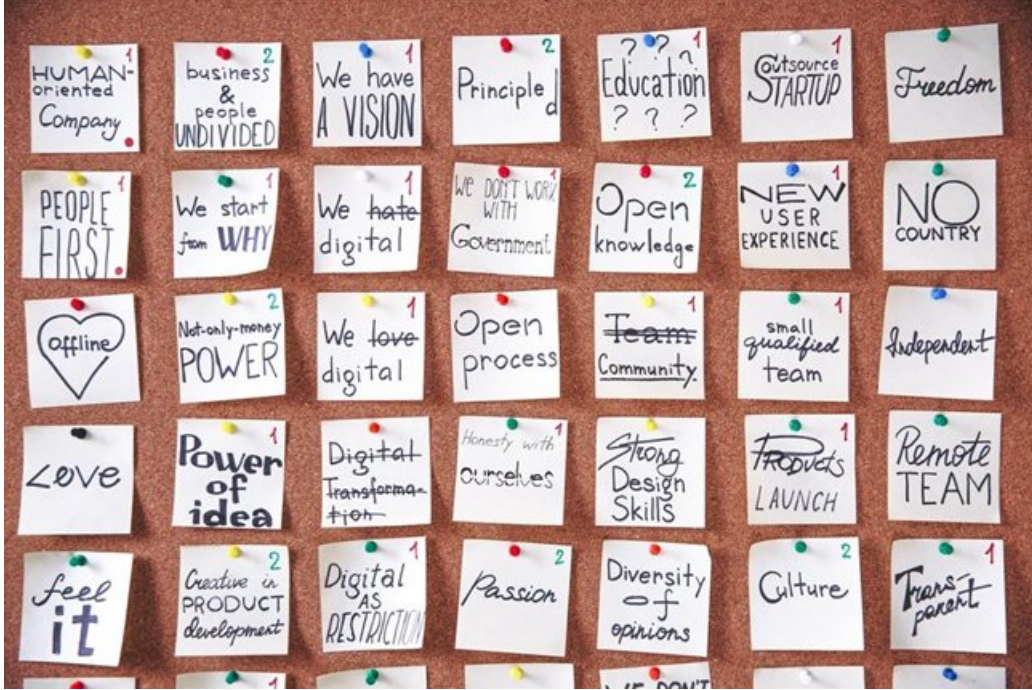 HUMAN-
oriented
Company
1
business
&
people
UNDIVIDED
2
We have
A VISION
1
Principled
2
? ? ?
Education
? ? ?
1
Outsource
STARTUP
1
Freedom
PEOPLE
FIRST
1
We start
from WHY
1
We hate
digital
1
WE DON'T WORK
WITH
Government
1
Open
knowledge
2
NEW
USER
EXPERIENCE
1
NO
COUNTRY
offline
Not-only-money
POWER
2
We love
digital
1
Open
process
Team
Community
1
small
qualified
team
1
Independent
LOVE
Power
of
idea
1
Digital
Transforma-
tion
Honesty with
ourselves
1
Strong
Design
Skills
PRODUCTS
LAUNCH
1
Remote
TEAM
feel
it
Creative in
PRODUCT
development
2
Digital
AS
RESTRICTION
1
Passion
2
Diversity
of
opinions
Culture
2
Trans-
parent
1
1
WE DON'T